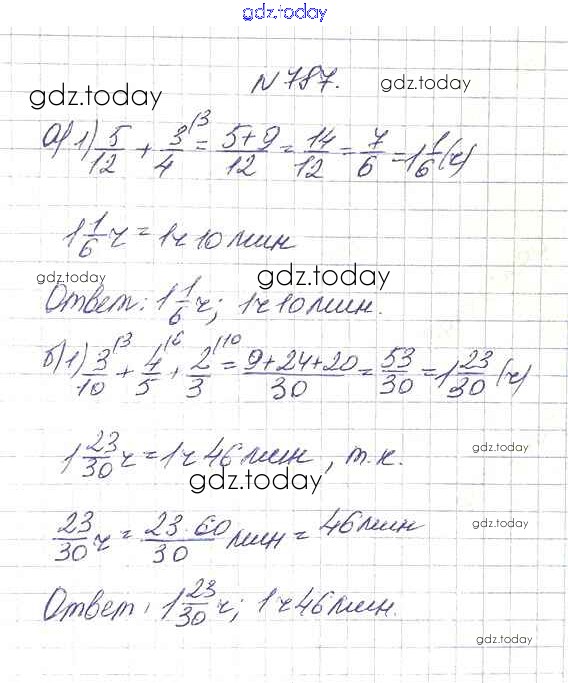 gdz.today
N 787.
gdz.today
gdz.today
а) 1) 5/12 + 3/4 (3 = 5+9/12 = 14/12 = 7/6 = 1 1/6 (ч)
1 1/6 ч = 1 ч 10 мин
gdz.today
gdz.today
Ответ: 1 1/6 ч; 1 ч 10 мин.
б) 1) 3/10 (3 + 4/5 (6 + 2/3 (10 = 9+24+20/30 = 53/30 = 1 23/30 (ч)
1 23/30 ч = 1 ч 46 мин, т.к.
gdz.today
gdz.today
23/30 ч = 23·60/30 мин = 46 мин
gdz.today
Ответ: 1 23/30 ч; 1 ч 46 мин.
gdz.today